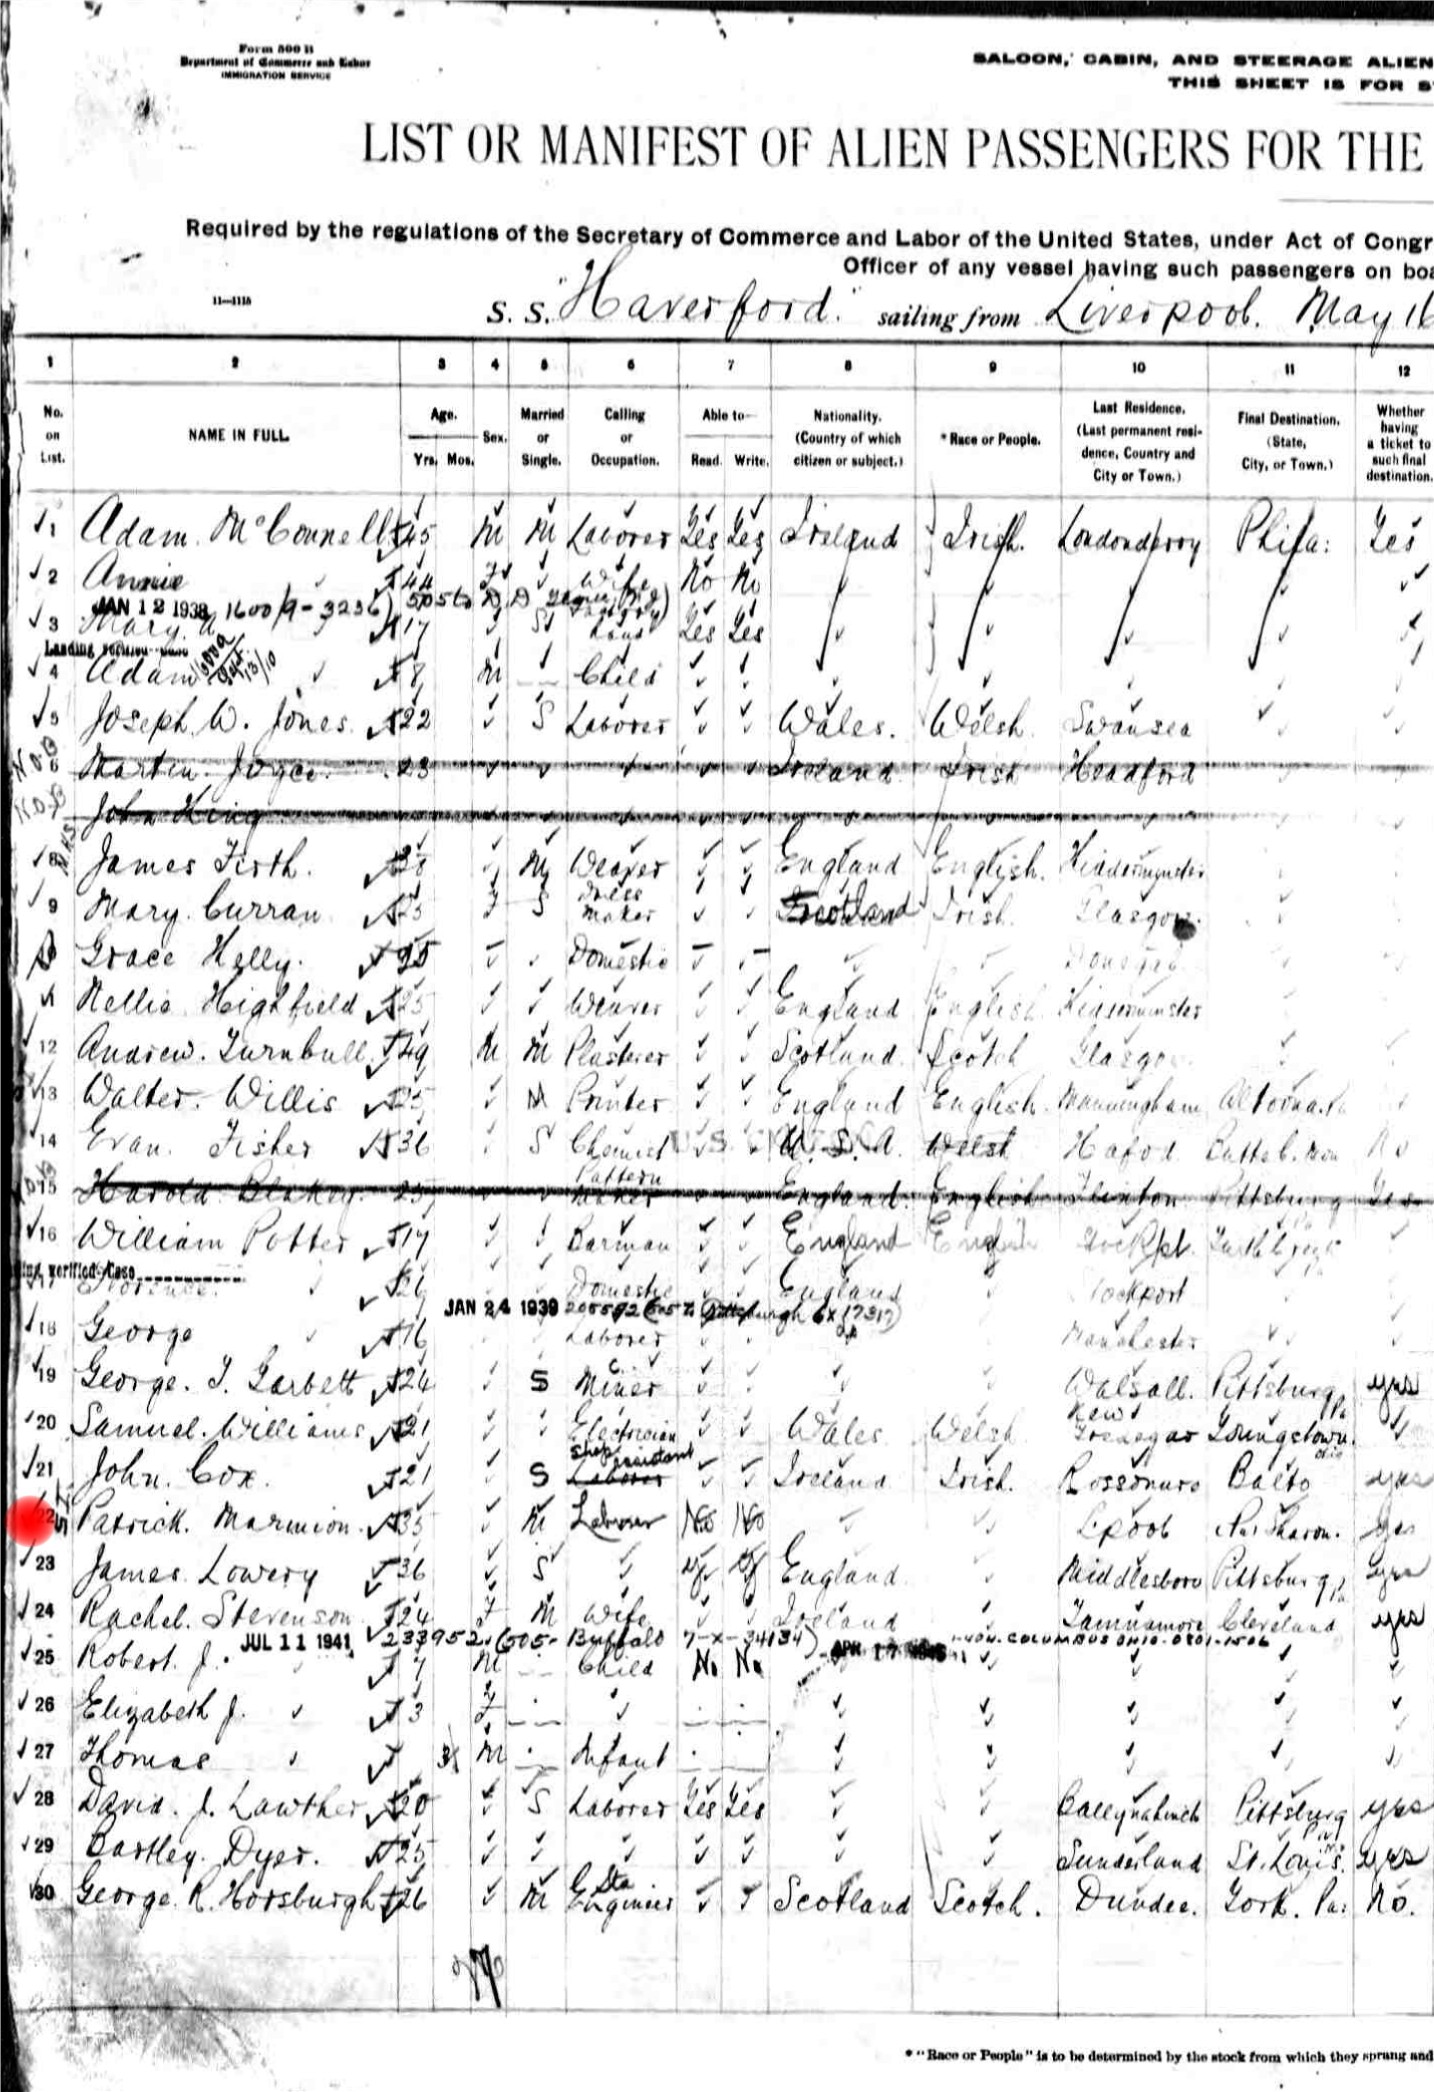 Form 500 B
Department of Commerce and Labor
IMMIGRATION SERVICE
SALOON, CABIN, AND STEERAGE ALIEN
THIS SHEET IS FOR S
LIST OR MANIFEST OF ALIEN PASSENGERS FOR THE
Required by the regulations of the Secretary of Commerce and Labor of the United States, under Act of Congr
Officer of any vessel having such passengers on boa
11—1115
S. S. "Haverford." sailing from Liverpool. May 16
1 2 3 4 5 6 7 8 9 10 11 12
No. on List. NAME IN FULL. Age. Yrs. Mos. Sex. Married or Single. Calling or Occupation. Able to— Read. Write. Nationality. (Country of which citizen or subject.) *Race or People. Last Residence. (Last permanent residence, Country and City or Town.) Final Destination. (State, City, or Town.) Whether having a ticket to such final destination.
1 Adam McConnell 45 M M Laborer Yes Yes Ireland Irish. Londonderry Phila: Yes
2 Annie 44 F Wife No No
JAN 12 1938 1600/9-3236)
3 Mary A 17 S Yes Yes
4 Adam 8 M — Child
5 Joseph W. Jones. 22 S Laborer Wales. Welsh Swansea
6 Martin Joyce. 23 Ireland Irish Headford
John King
8 James Firth. 38 M Weaver England English. Kidderminster
9 Mary Curran 25 F S Dress Maker Scotland Irish. Glasgow.
Grace Kelly. 25 Domestic Donegal
11 Nellie Highfield 25 Weaver England English Kidderminster
12 Andrew Turnbull 49 M M Plasterer Scotland. Scotch Glasgow
13 Walter Willis 25 M Printer England English. Manningham Altoona. Pa
14 Evan Fisher 36 S Chemist U.S.A. Welsh Hafod Butte C. Mon No
15 Harold Blakey. 25 Pattern Maker England. English Pittsburg Yes
16 William Potter 17 Barman England English Stockpt.
verified Case
17 Florence. 26 Domestic England Stockport
JAN 24 1939
18 George 16 Laborer Manchester
19 George. T. Garbett 24 S C. Miner Walsall. Pittsburg, Pa yes
20 Samuel. Williams 21 Electrician Wales Welsh New Tredegar Youngstown. Ohio
21 John. Cox. 21 S Shop assistant Laborer Ireland Irish. Rossnure Balto yes
22 Patrick. Marmion. 35 M Laborer No No L'pool Sharon. Yes
23 James Lowery 36 S England Middlesboro Pittsburg, Pa yes
24 Rachel. Stevenson 24 F M Wife Ireland Tamnamore Cleveland yes
JUL 11 1941 233952 (505- Buffalo 7-X-34134)
25 Robert J. 7 M — Child No No
26 Elizabeth J. 3 F
27 Thomas M Infant
28 David. J. Lawther 20 S Laborer Yes Yes Ballynahinch Pittsburg Pa yes
29 Bartley. Dyer. 25 Sunderland St. Louis. yes
30 George. R. Horsburgh 26 M Engineer Scotland Scotch. Dundee. York. Pa: No.
* "Race or People" is to be determined by the stock from which they sprang and